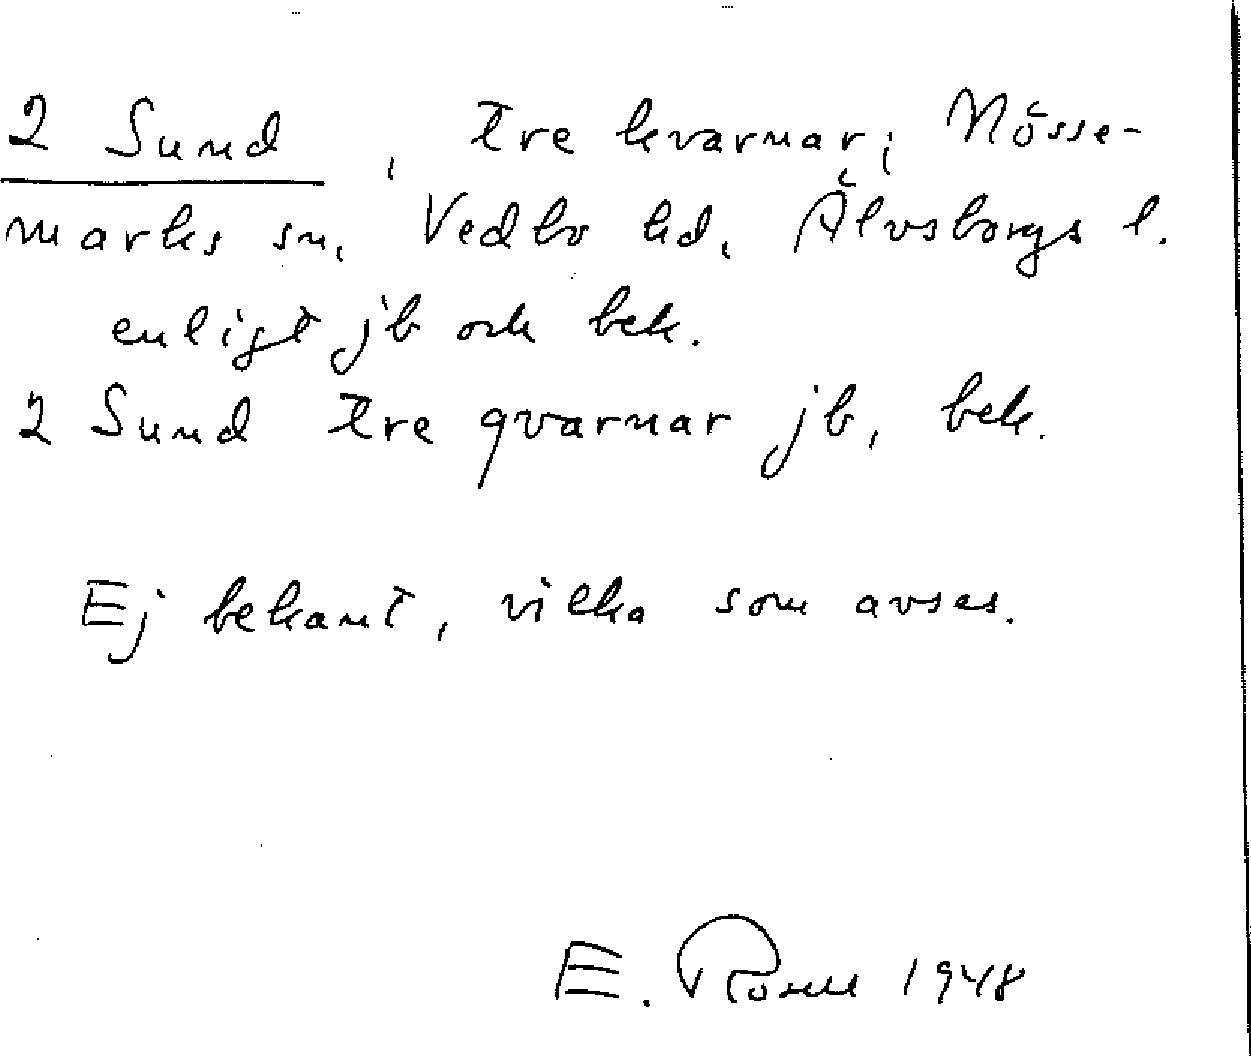 2 Sund, tre kvarnar; Nösse-
marks sn, Vedbo hd, Älvsborgs l.
enligt jb och bek.
2 Sund tre qvarnar jb, bek.
Ej bekant, vilka som avses.
E. Rosell 1948